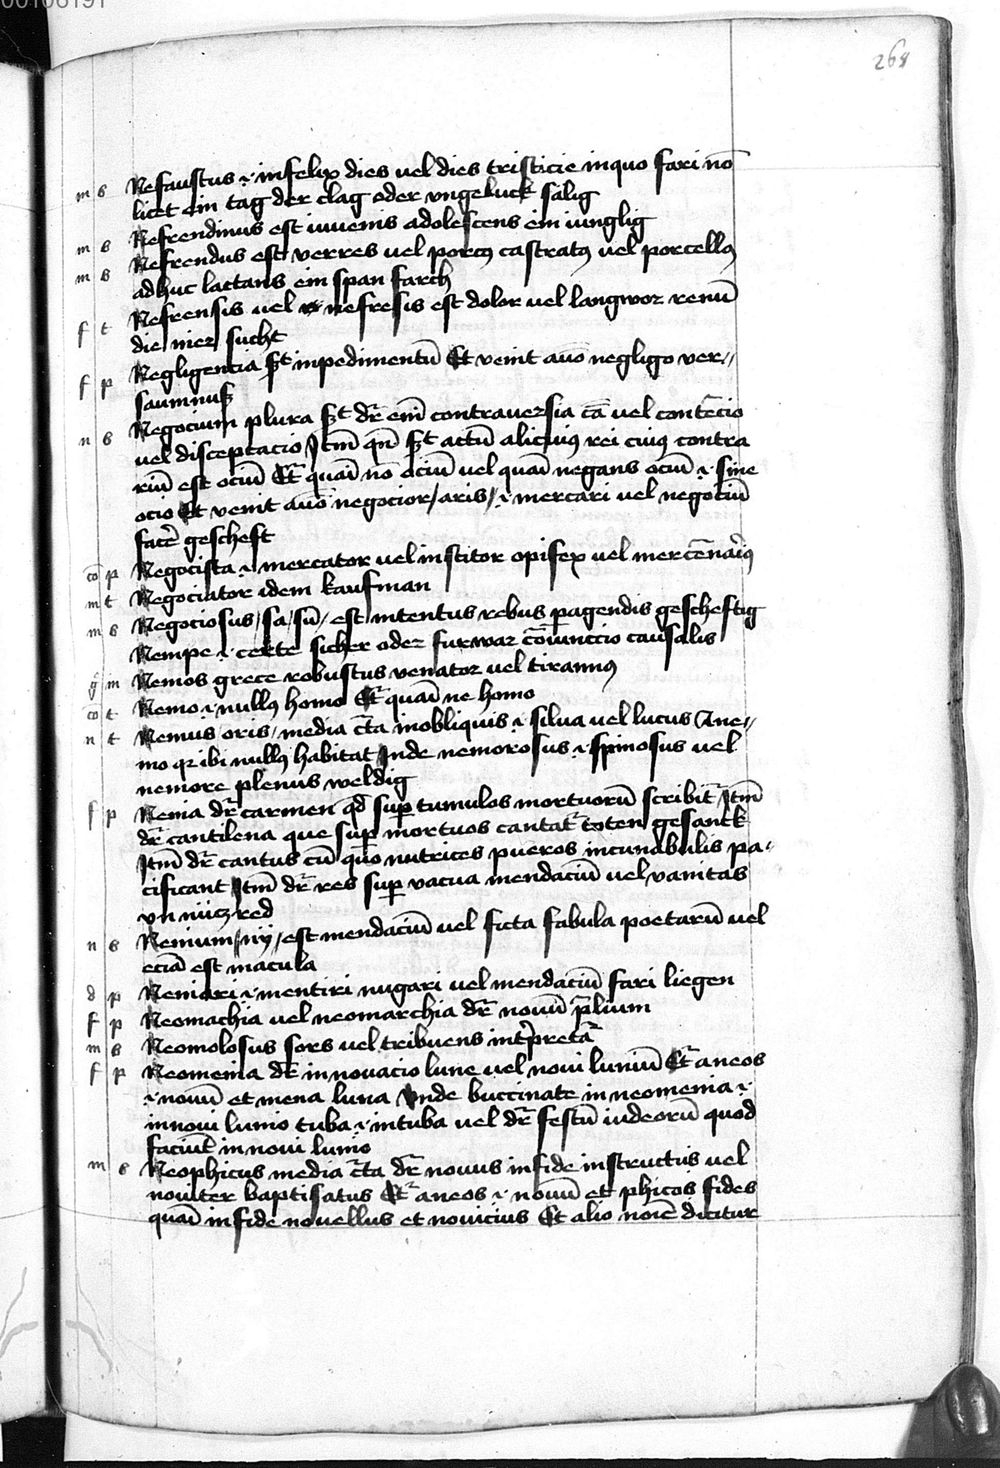 268
m s Nefaustus .i. infelix dies uel dies tristicie in quo fari nō
licet ein tag der clag oder vngeluck sälig
m s Nefrendinus est iuuenis adolescens ein iunglig
m s Nefrendus est verres uel porcꝰ castratꝰ uel porcellꝰ
adhuc lactans ein span farch
f t Nefrensis uel nefresis est dolor uel langwor renū
die nier sucht
f p Negligencia sꝫt inpedimentū Et venit auō negligo ver//
saumnuß
n s Negocium plura sꝫt dr̄ em̄ contrauersia cā uel contēcio
uel disceptacio Itm̄ qn̄ sꝫt actū alicuiꝰ rei cuiꝰ contra
riū est ociū Et̄ quāi nō ociū uel quāi negans ociū .i. sine
ocio Et venit auō negocior/aris/.i. mercari uel negociū
facē gescheft
cō p Negocista .i. mercator uel institor opifex uel mercēnariꝰ
m t Negociator idem kaufman
m s Negociosus/sa/sū/ est intentus rebus ꝑagendis gescheftig
Nempe .i. certe sicher oder furwar cōiunccio causalis
g m Nemos grece robustus venator uel tirannꝰ
cō t Nemo .i. nullꝰ homo Et̄ quāi ne homo
n t Nemus oris/ media c̄ta in obliquis .i. silua uel lucus A ne//
mo qꝛ ibi nullꝰ habitat Inde nemorosus .i. spinosus uel
nemore plenus weldig
f p Nenia dr̄ carmen qd̄ suꝑ tumulos mortuorū scribit̄ Itm̄
dr̄ cantilena que suꝑ mortuos cantat̄ toten gesanck
Itm̄ dr̄ cantus cū quo nutrices pueros in cunabulis pa-
cificant Itm̄ dr̄ res suꝑ vacua mendaciū uel vanitas
vn nücz red
n s Nenium/nij/est mendaciū uel ficta fabula poetarū uel
eciā est macula
d p Neniari .i. mentiri nugari uel mendaciū fari liegen
f p Neomachia uel neomarchia dr̄ nouū p̄lium
m s Neomolosus sors uel tribuens intp̄reta
f p Neomenia dr̄ innouacio lune uel noui luniū Et̄ a neos
.i. nouū et mena luna Vnde buccinate in neomenia .i.
in noui lunio tuba .i. in tuba uel dr̄ festū iudeorū quod
faciūt in noui lunio
m s Neophicus media c̄ta dr̄ nouus in fide instructus uel
nouiter baptisatus Et̄ a neos .i. nouū et phicos fides
quāi in fide nouellus et nouicius Et alio noīe dicitur